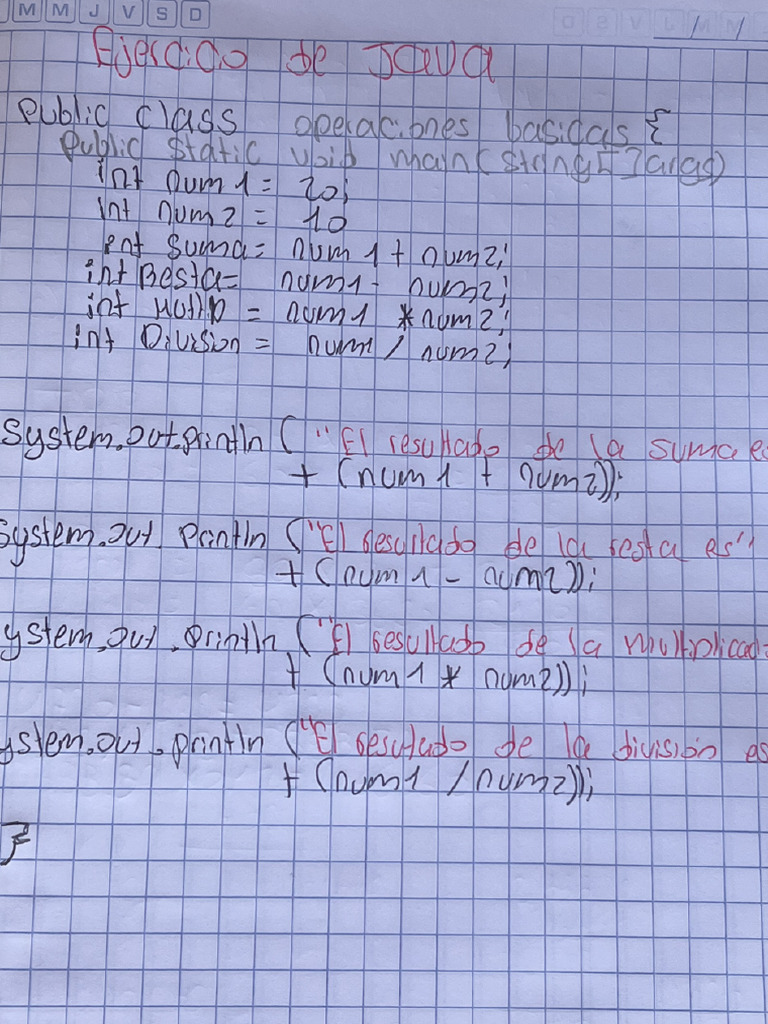 M M J V S D
Ejercicio de JAVA
public class operaciones basicas {
public static void main(string[ ]args)
int num1 = 20;
int num2 = 10
int suma= num1 + num2;
int Resta= num1 - num2;
int Multip = num1 * num2;
int Division = num1 / num2;
System.out.println ("El resultado de la suma es
+ (num1 + num2));
System.out.println ("El resultado de la resta es"
+ (num1 - num2));
ystem.out.println ("El resultado de la multiplicad
+ (num1 * num2));
ystem.out.println ("El resultado de la división es
+ (num1 / num2));
}